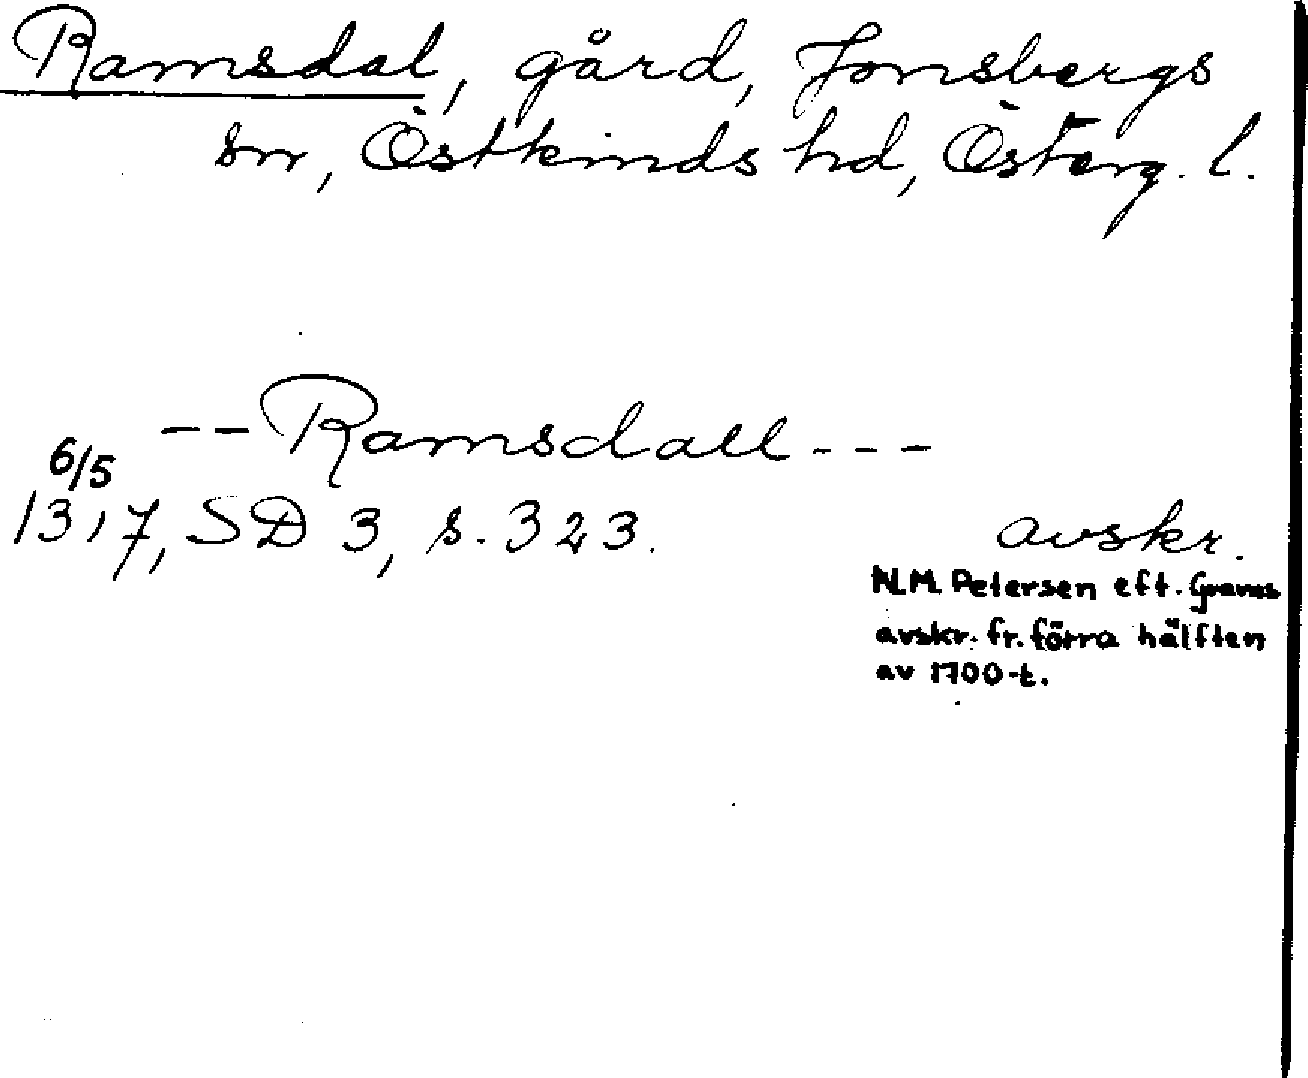 Ramsdal, gård, Jonsbergs
sn, Östkinds hd, Österg. l.
-- Ramsdall ---
6/5
1317, SD 3, s. 323.
avskr.
N.M. Petersen eft. Grams
avskr. fr. förra hälften
av 1700-t.